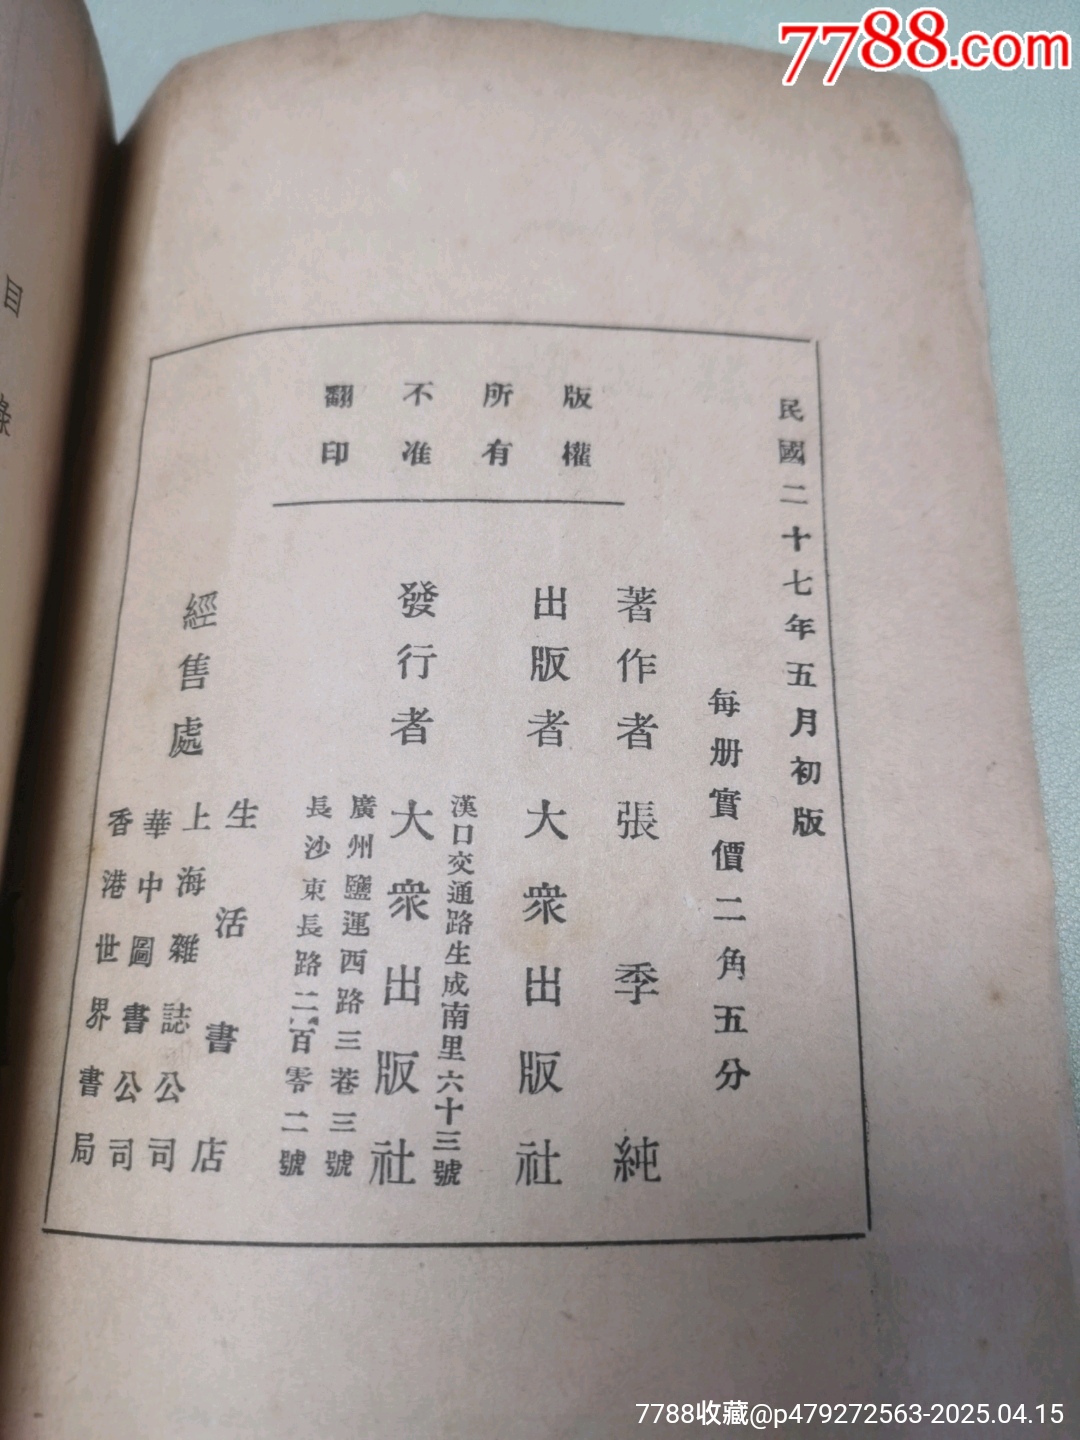 7788.com
民國二十七年五月初版
每册實價二角五分
版權
所有
不准
翻印
著作者 張季純
出版者 大衆出版社
發行者 大衆出版社
漢口交通路生成南里六十三號
廣州鹽運西路三巷三號
長沙東長路二百零二號
經售處
生活書店
上海雜誌公司
華中圖書公司
香港世界書局
目錄
7788收藏@p479272563-2025.04.15